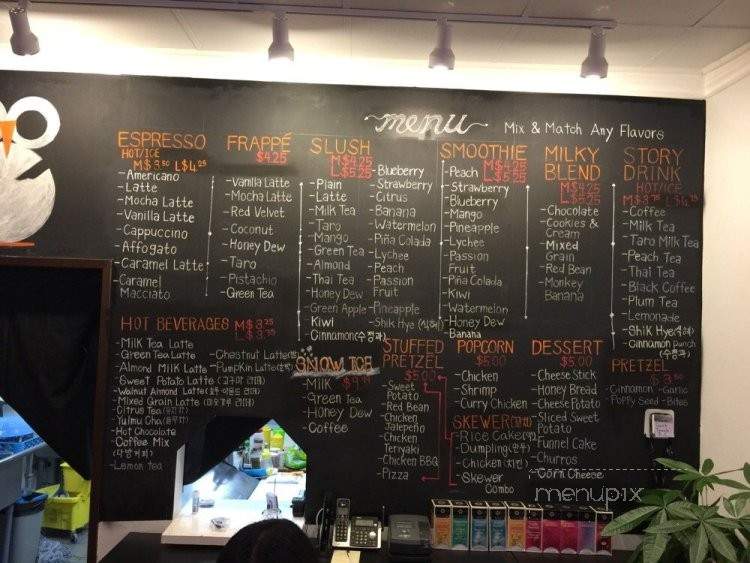 menu
Mix & Match Any Flavors
ESPRESSO
HOT/ICE
M$3.50 L$4.25
-Americano
-Latte
-Mocha Latte
-Vanilla Latte
-Cappuccino
-Affogato
-Caramel Latte
-Caramel
Macciato
FRAPPÉ
$4.25
-Vanilla Latte
-Mocha Latte
-Red Velvet
-Coconut
-Honey Dew
-Taro
-Pistachio
-Green Tea
SLUSH
M$4.25
L$5.25
-Plain
-Latte
-Milk Tea
-Taro
-Mango
-Green Tea
-Almond
-Thai Tea
-Honey Dew
-Green Apple
-Kiwi
-Cinnamon(수정과)
-Blueberry
-Strawberry
-Citrus
-Banana
-Watermelon
-Piña Colada
-Lychee
-Peach
-Passion
Fruit
-Pineapple
-Shik Hye (식혜)
SMOOTHIE
M$4.25
L$5.25
-Peach
-Strawberry
-Blueberry
-Mango
-Pineapple
-Lychee
-Passion
Fruit
-Piña Colada
-Kiwi
-Watermelon
-Honey Dew
-Banana
MILKY
BLEND
M$4.25
L$5.25
-Chocolate
-Cookies &
Cream
-Mixed
Grain
-Red Bean
-Monkey
Banana
STORY
DRINK
HOT/ICE
M$3.75 L$4.25
-Coffee
-Milk Tea
-Taro Milk Tea
-Peach Tea
-Thai Tea
-Black Coffee
-Plum Tea
-Lemonade
-Shik Hye(식혜)
-Cinnamon punch
(수정과)
HOT BEVERAGES M$3.25
L$3.75
-Milk Tea Latte
-Green Tea Latte
-Almond Milk Latte
-Sweet Potato Latte (고구마 라떼)
-Walnut Almond Latte
-Mixed Grain Latte
-Citrus Tea (유자차)
-Yulmu Cha (율무차)
-Hot Chocolate
-Coffee Mix
(다방커피)
-Lemon tea
-Chestnut Latte
-Pumpkin Latte
SNOW ICE
$9.99
-Milk
-Green Tea
-Honey Dew
-Coffee
STUFFED
PRETZEL
$5.00
-Sweet
Potato
-Red Bean
-Chicken
Jalepeño
-Chicken
Teriyaki
-Chicken BBQ
-Pizza
POPCORN
$5.00
-Chicken
-Shrimp
-Curry Chicken
SKEWER
-Rice Cake
-Dumpling(만두)
-Chicken
-Skewer
Combo
DESSERT
$5.00
-Cheese Stick
-Honey Bread
-Cheese Potato
-Sliced Sweet
Potato
-Funnel Cake
-Churros
-Corn Cheese
PRETZEL
$3.50
-Cinnamon -Garlic
-Poppy Seed -Bites
menupix